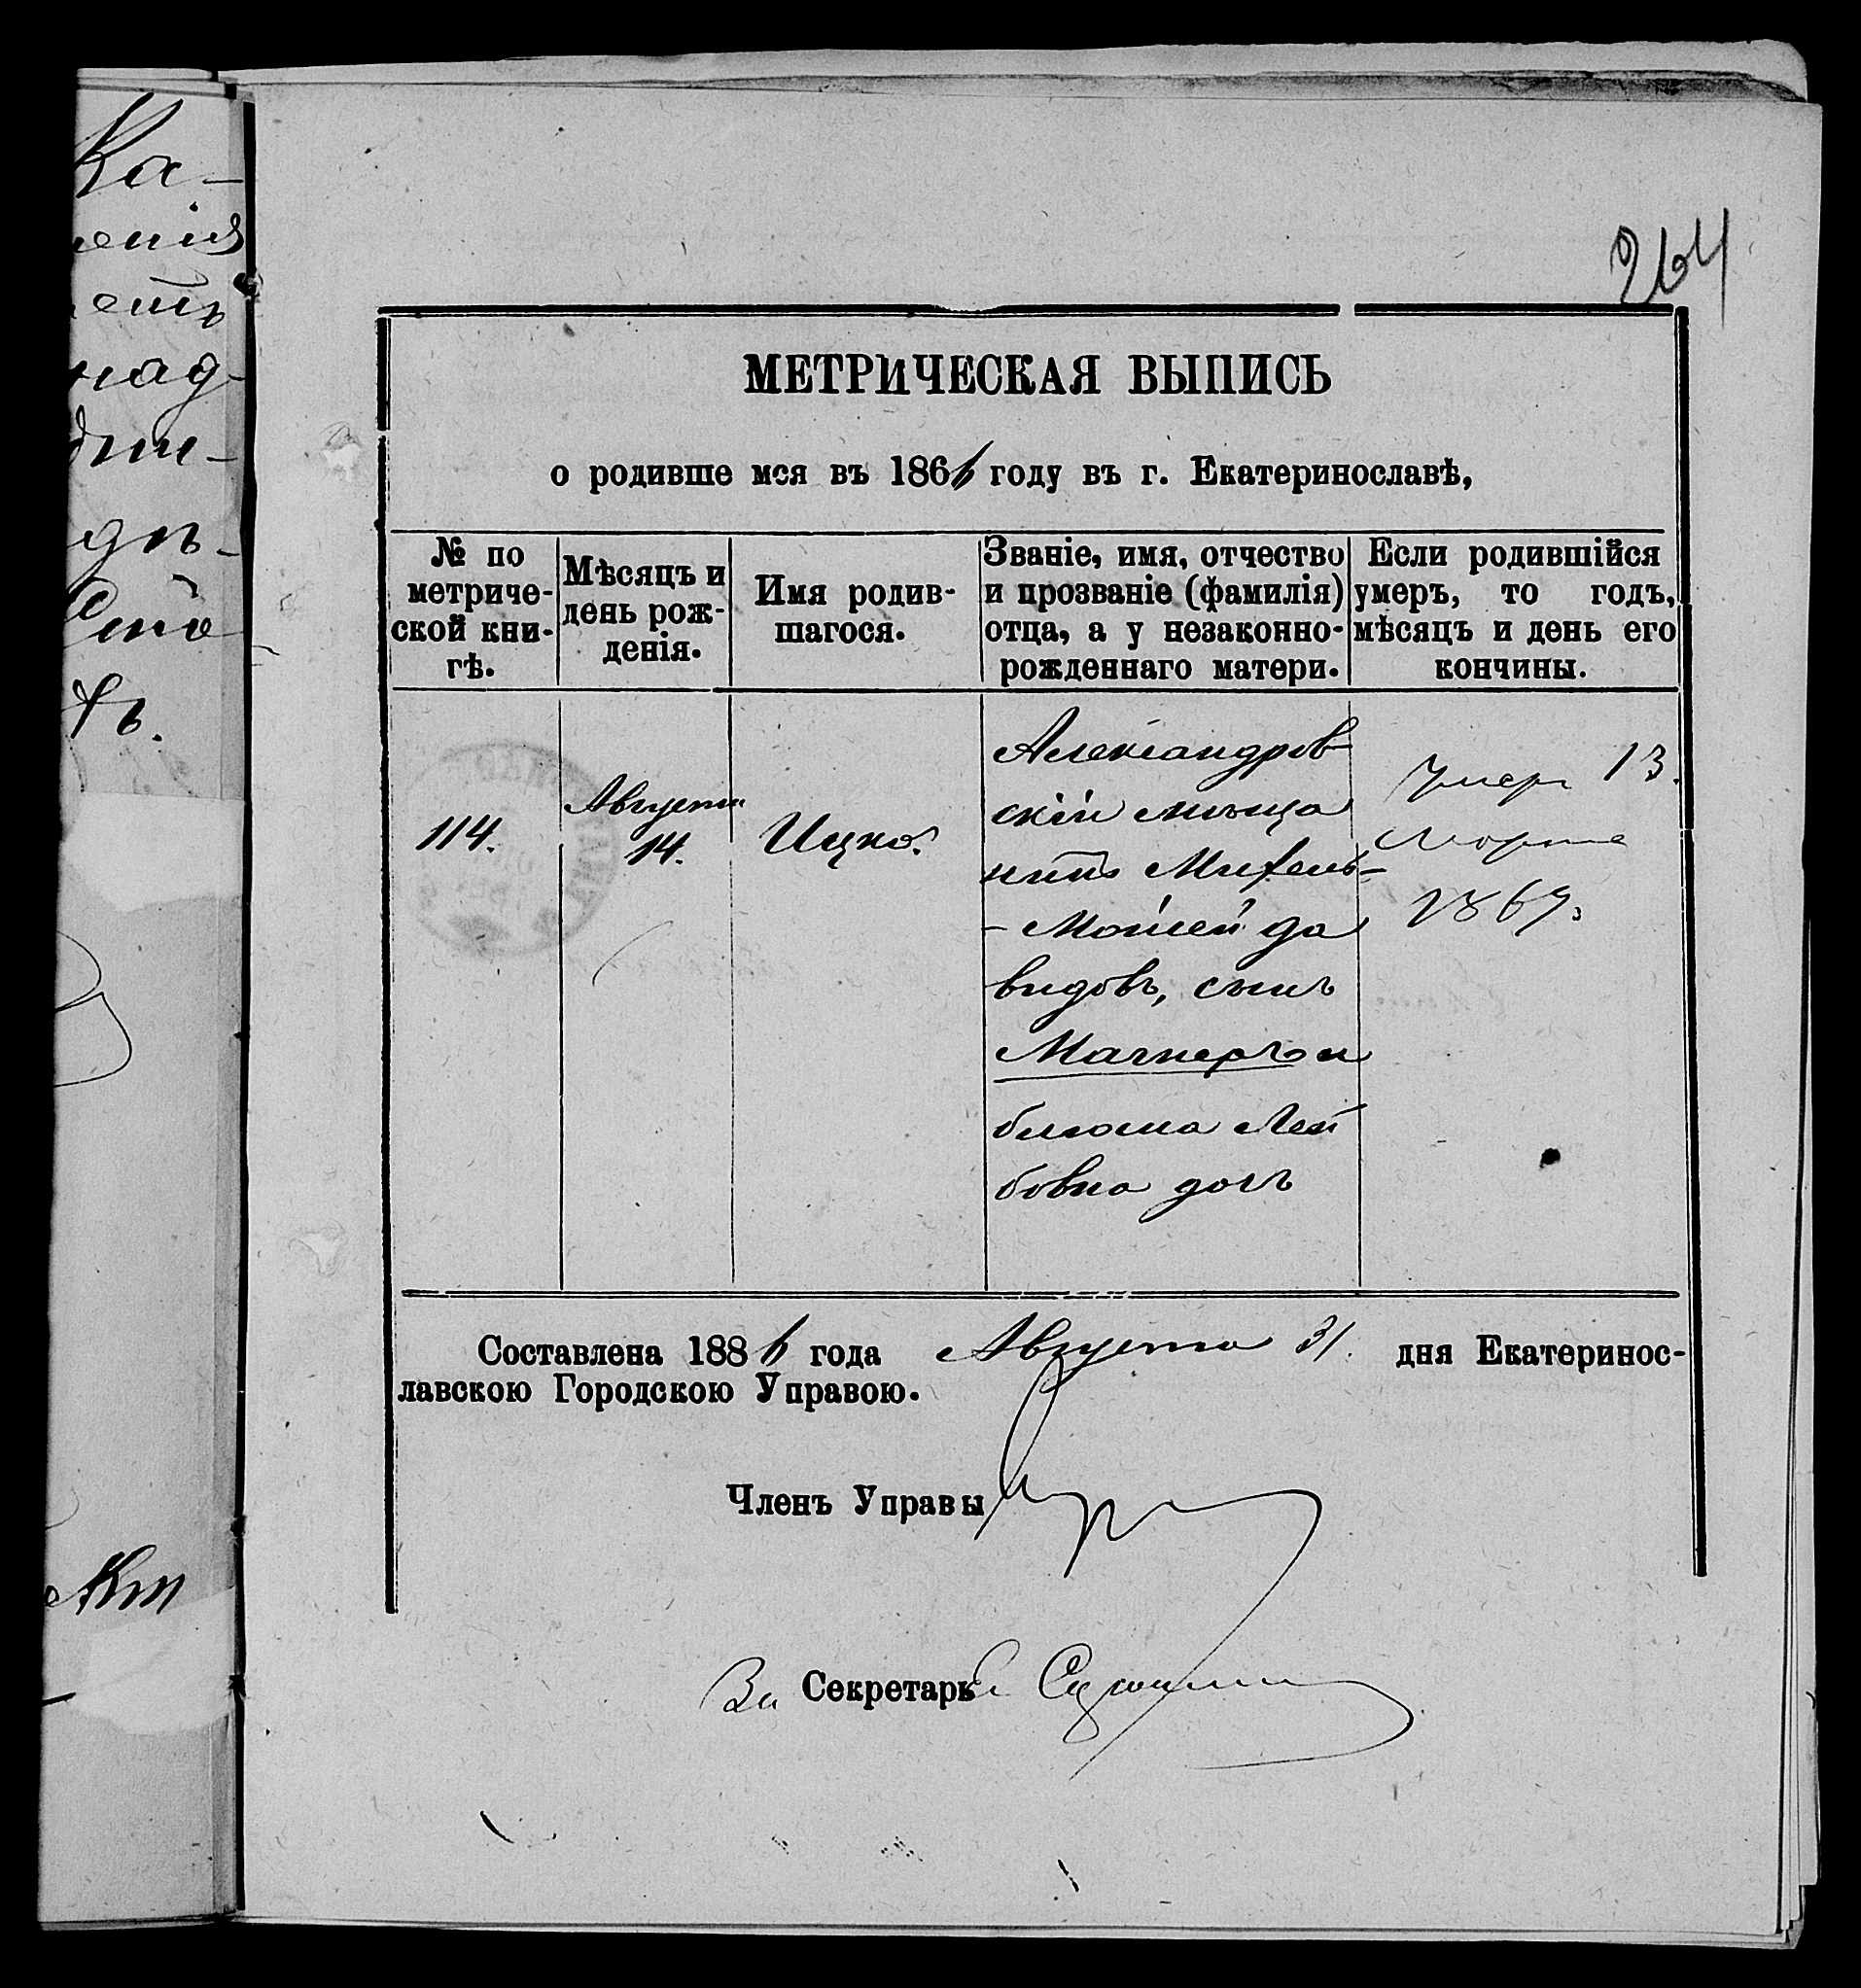 Ка-
ения
еть
над-
дѣ-
Что
264
МЕТРИЧЕСКАЯ ВЫПИСЬ
о родивше мся въ 1866 году въ г. Екатеринославѣ,
№ по метриче-ской кни-гѣ.
Мѣсяцъ и день рож-денія.
Имя родив-шагося.
Званіе, имя, отчество и прозваніе (фамилія) отца, а у незаконно-рожденнаго матери.
Если родившійся умеръ, то годъ, мѣсяцъ и день его кончины.
114.
Августа
14.
Ицко.
Александров-
скій мѣща
нинъ Михель-
- Мойсей Да
видовъ, сынъ
Магнеръ и
блюма Лей
бовна дочь
Умеръ 13.
Марта
1867.
Составлена 1886 года Августа 31. дня Екатеринос-
лавскою Городскою Управою.
Членъ Управы
За Секретаря